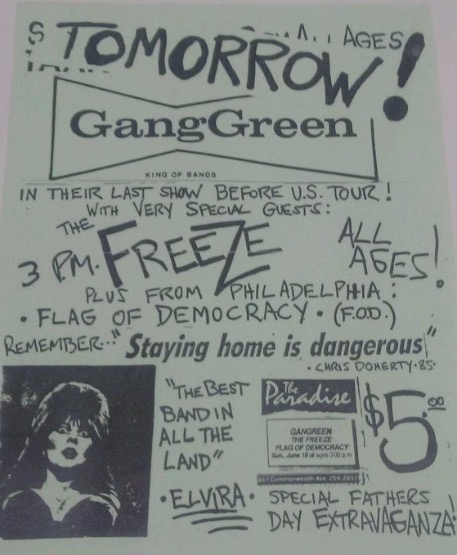 TOMORROW!
AGES
GangGreen
KING OF BANDS
IN THEIR LAST SHOW BEFORE U.S. TOUR!
WITH VERY SPECIAL GUESTS:
3 P.M. THE FREEZE ALL AGES!
PLUS FROM PHILADELPHIA:
• FLAG OF DEMOCRACY • (F.O.D.)
REMEMBER.. "Staying home is dangerous"
• CHRIS DOHERTY • 85 •
"THE BEST
BAND IN
ALL THE
LAND"
• ELVIRA •
The
Paradise
GANGREEN
THE FREEZE
FLAG OF DEMOCRACY
Sun. June 18 all ages 3:00 p.m.
967 Commonwealth Ave.
$5.00
SPECIAL FATHERS
DAY EXTRAVAGANZA!